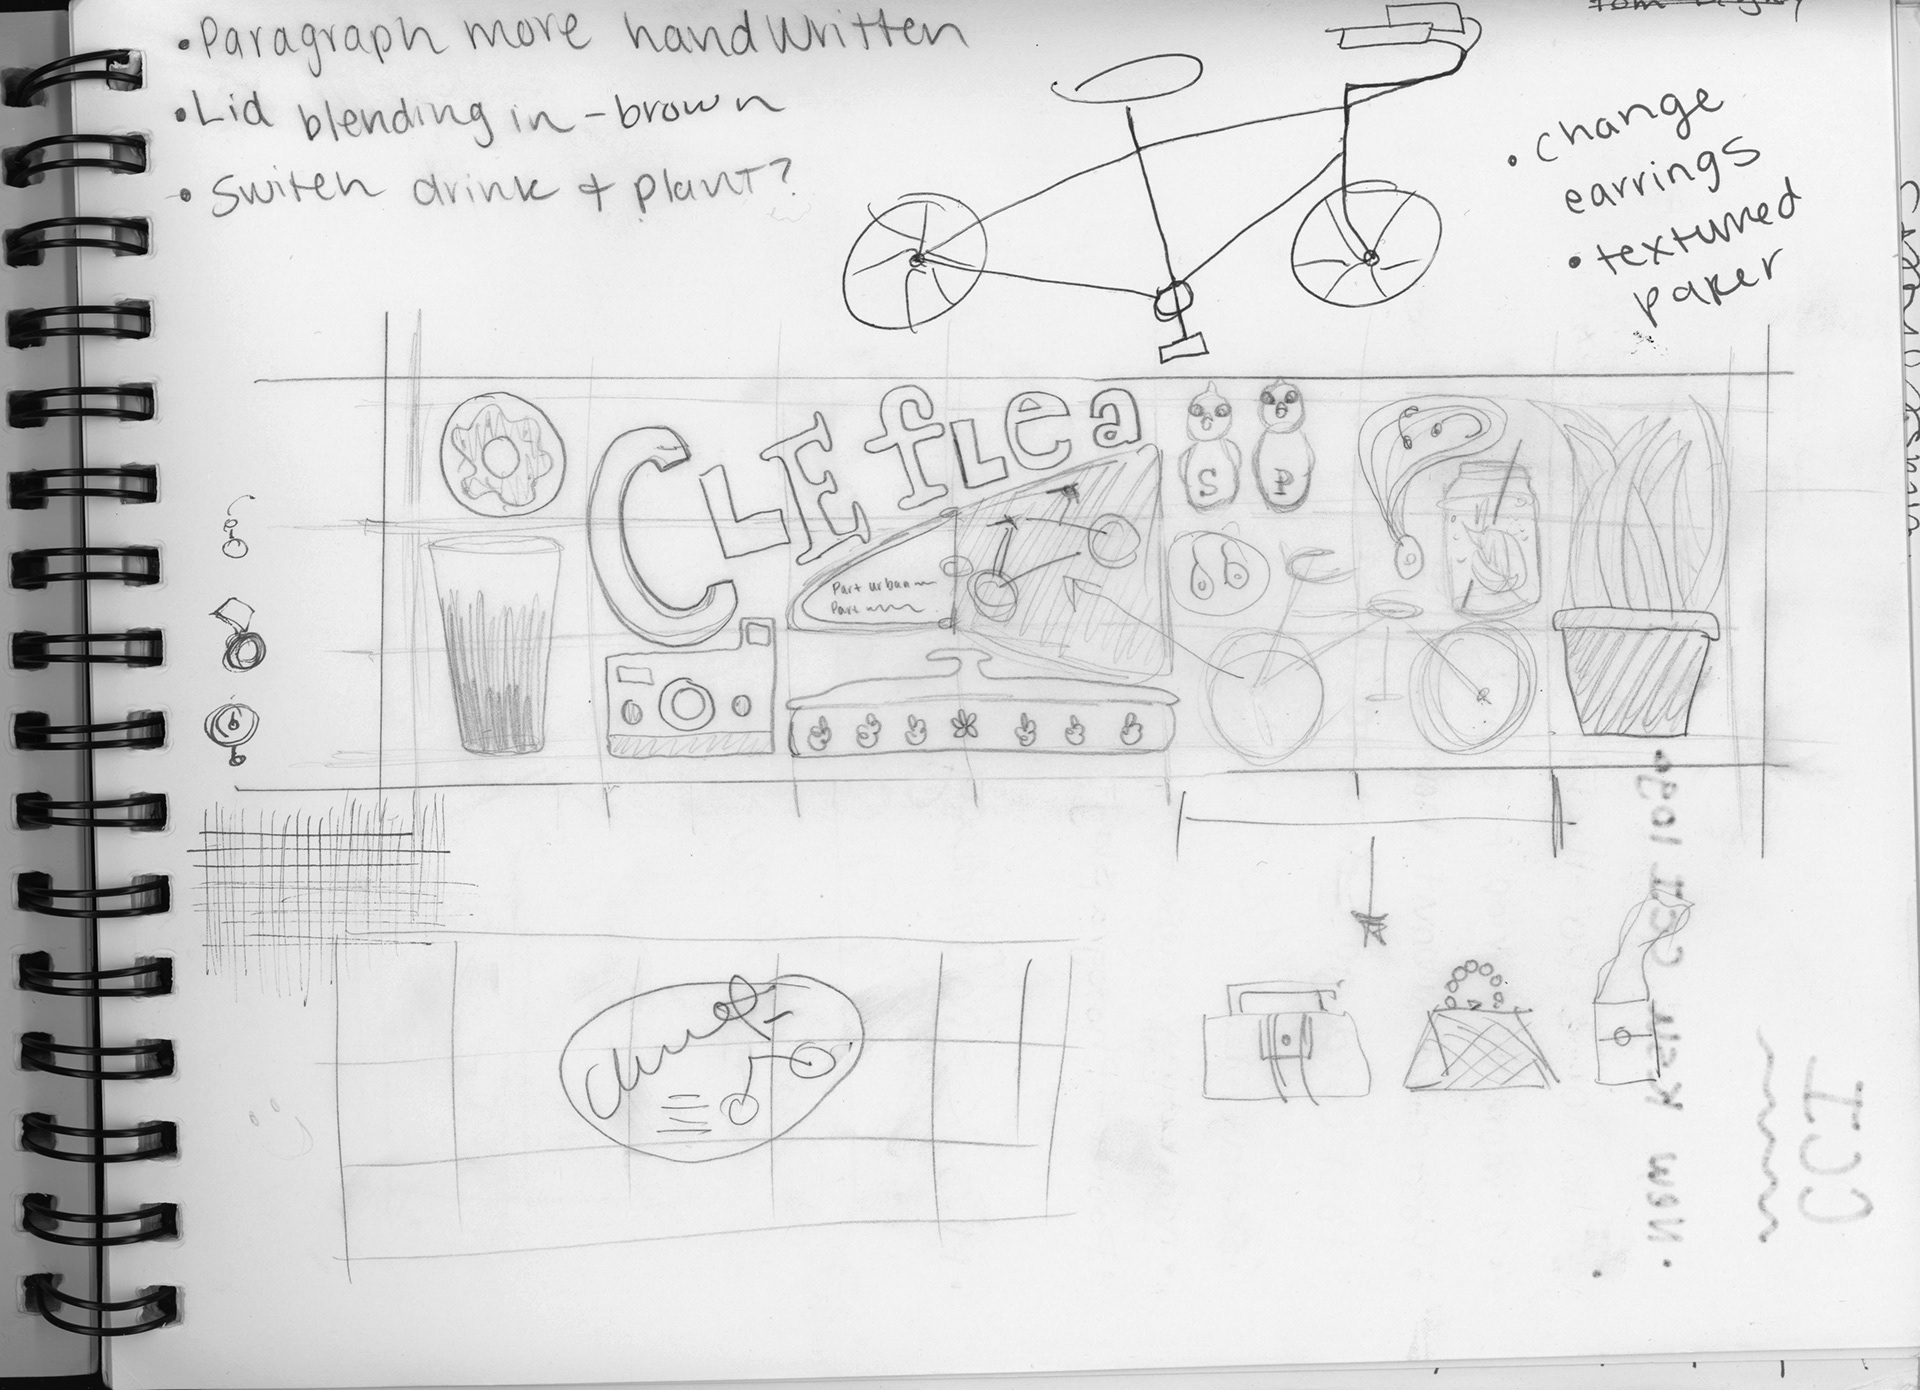 • Paragraph more handwritten
• Lid blending in - brown
• Switch drink + plant?
• change
earrings
• textured
paper
CLE flea
S P
Part urban
Part
CCI